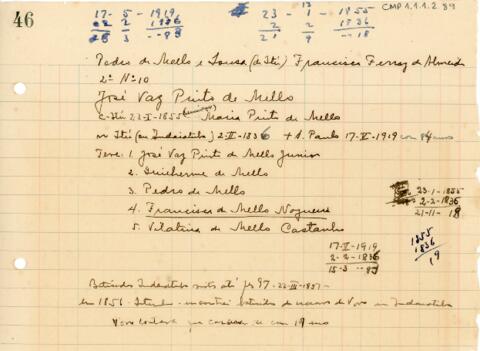 46
17 - 5 - 1919
2 2 1836
3 -- 83
23 - 1 - 1855
2 2 1836
21 -- 18
CMP 1.1.1.2 89
Pedro de Mello e Souza (de Itú) Francisca Ferraz de Almeida
2º Nº 10
José Vaz Pinto de Mello
c - Itú 23-I-1855 Maria Pinto de Mello
n Itú (em Indaiatuba) 2-II-1836 + S. Paulo 17-V-1919 com 84 anos
Teve: 1. José Vaz Pinto de Mello Junior
2. Guilherme de Mello
3. Pedro de Mello
4. Francisca de Mello Nogueira
5. de Mello Castanho
23-1-1855
2-2-1836
21-11-18
1855
1836
19
17-V-1919
2-2-1836
15-3 --83
Batisados Indaiatuba até fs 97 - 22-III-1857 -
em 1856 batisados de de Vovo em Indaiatuba
Vovo que com 19 anos